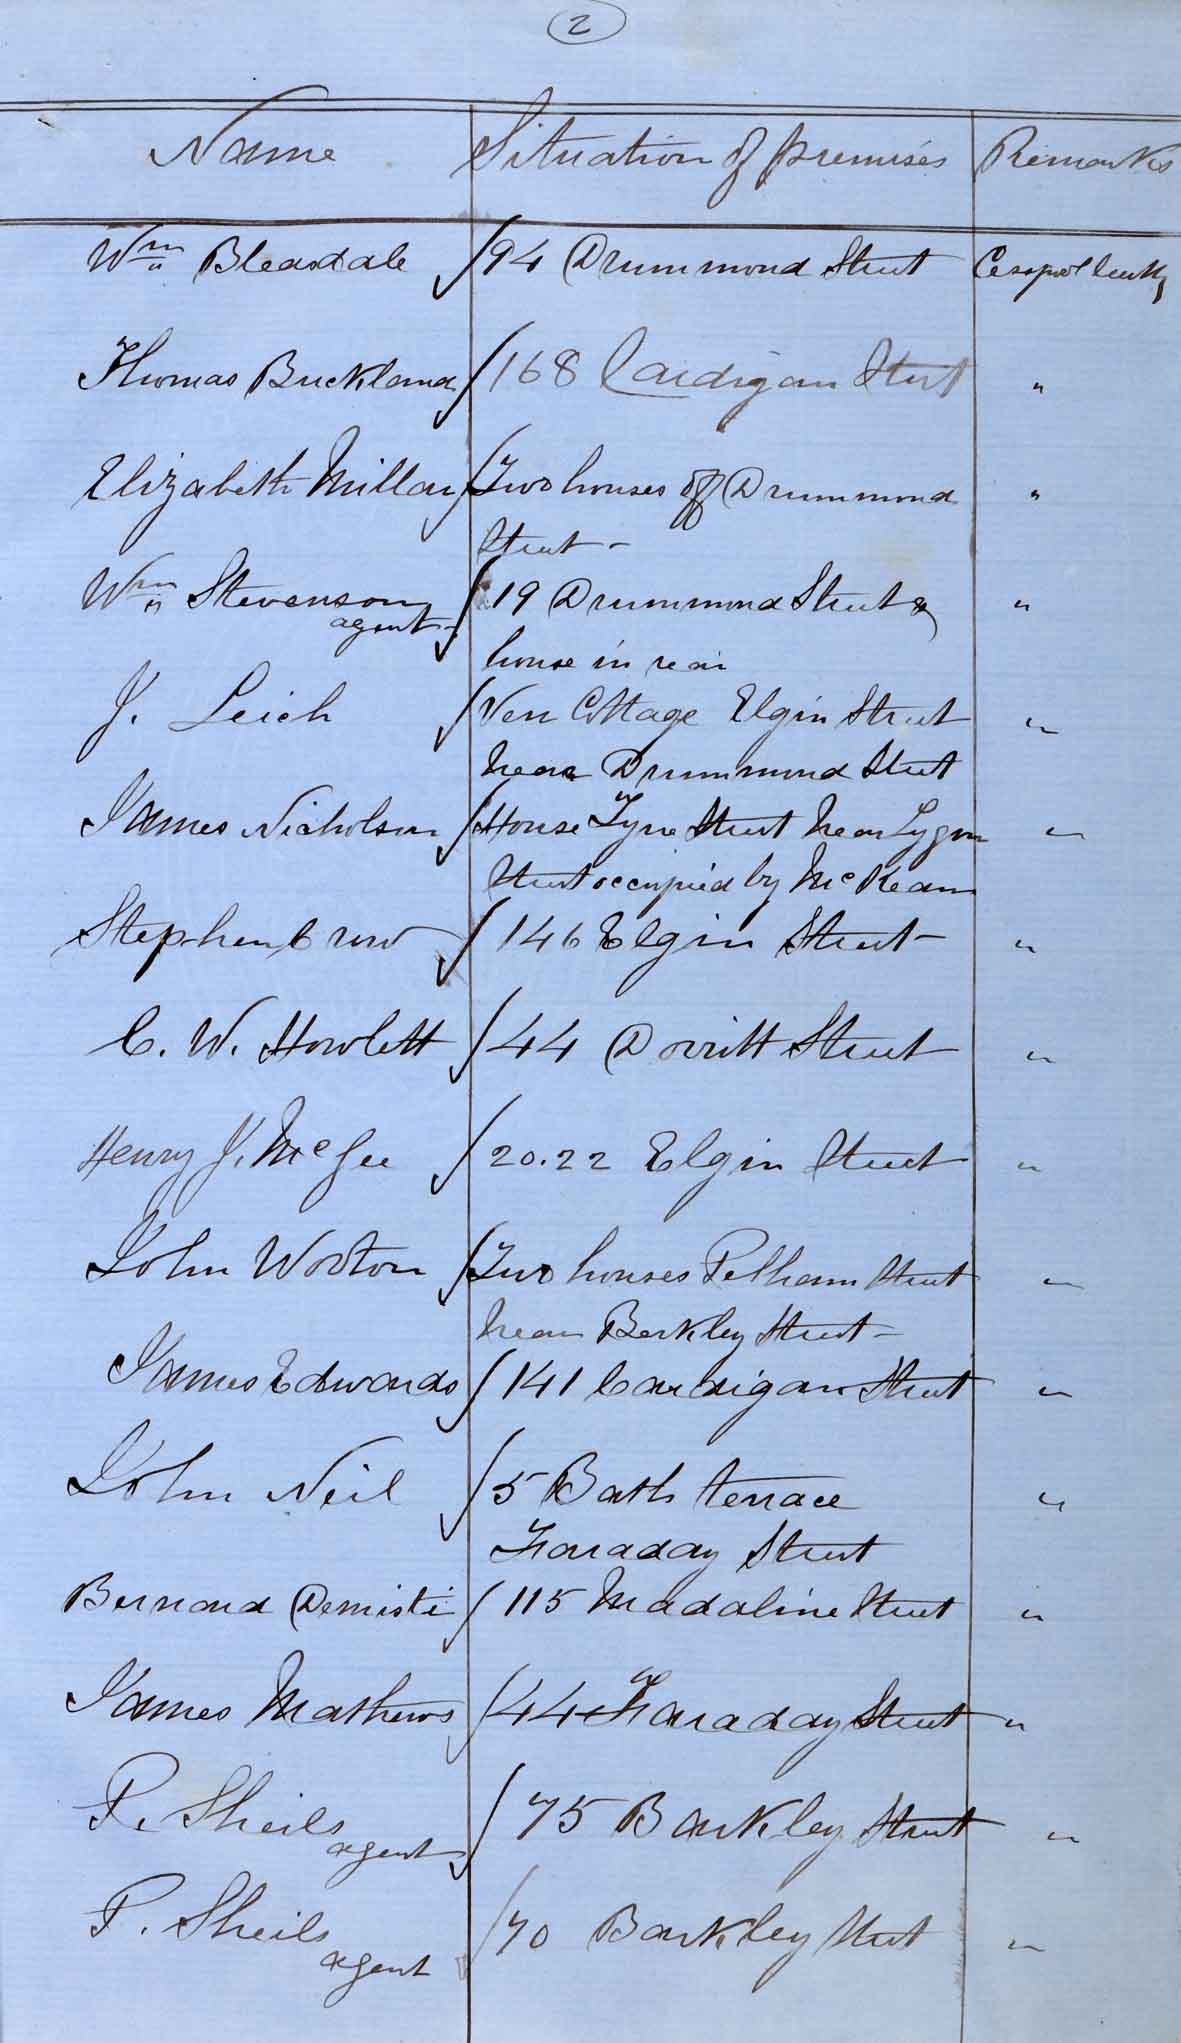 2
Name Situation of premises Remarks
Wm Bleasdale 94 Drummond Street Cesspool leaking
Thomas Buckland 168 Cardigan Street "
Elizabeth Millar Two houses off Drummond "
Street -
Wm Stevenson 19 Drummond Street & "
agent -
house in rear
J. Leich Cottage Elgin Street "
near Drummond Street
James Nicholson House Tyne Street near Lygon "
Street occupied by McKean
Stephen Crew 146 Elgin Street "
C. W. Howlett 44 Dorritt Street "
Henry J. McGee 20.22 Elgin Street "
John Worton Two houses Pelham Street "
near Berkley Street -
James Edwards 141 Cardigan Street "
John Neil 5 Bath terrace "
Faraday Street
Bernard Demisti 115 Madaline Street "
James Mathews 44 Faraday Street "
P. Sheils 75 Barkley Street "
agent
P. Sheils 70 Barkley Street "
agent